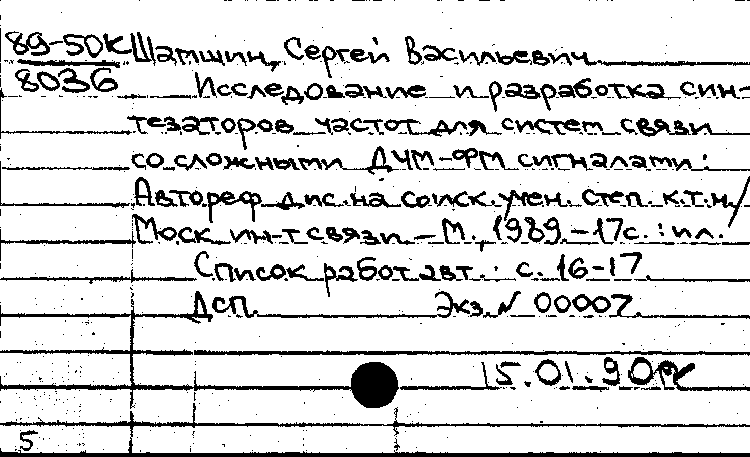 89-50К Шатшин, Сергей Васильевич
8036 Исследование и разработка син-
тезаторов частот для систем связи
со сложными ДЧМ-ФМ сигналами:
Автореф дис. на соиск. учен. степ. к.т.н./
Моск ин-т связи. – М., 1989. – 17с. : ил.
Список работ авт.: с. 16-17.
ДСП. Экз. № 00007.
15.01.90
5